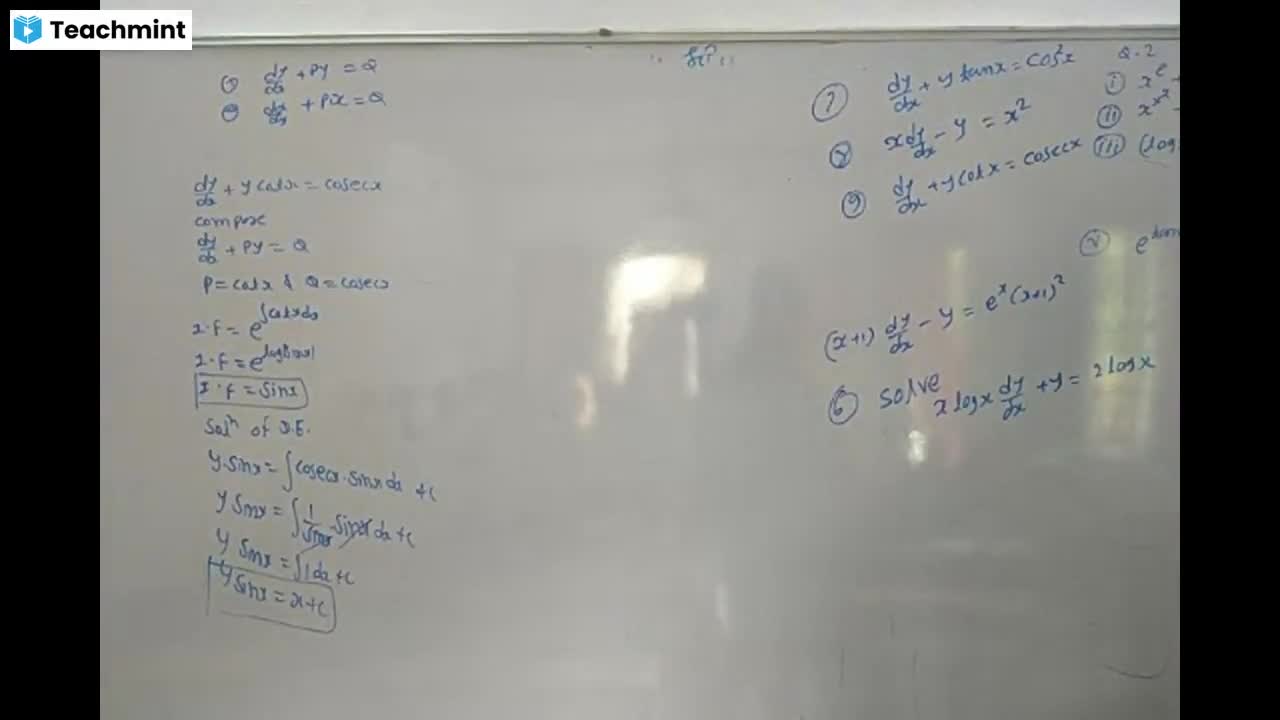 Teachmint
① dy/dx + Py = Q
② dx/dy + Px = Q
dy/dx + y cotx = cosecx
compare
dy/dx + Py = Q
P = cotx & Q = cosecx
I.F = e^∫cotxdx
I.F = e^log|sinx|
I.F = sinx
Solⁿ of D.E.
y.sinx = ∫cosecx.sinx dx + c
y sinx = ∫ 1/sinx . sinx dx + c
y sinx = ∫1dx + c
y sinx = x + c
⑦ dy/dx + y tanx = cos²x
⑧ x dy/dx - y = x²
⑨ dy/dx + y cotx = cosecx
(x+1) dy/dx - y = e^x (x+1)²
⑥ solve
x logx dy/dx + y = 2 logx
Q.2
ⓘ x^e
ⓘⓘ x^x²
ⓘⓘⓘ (log
e^tan